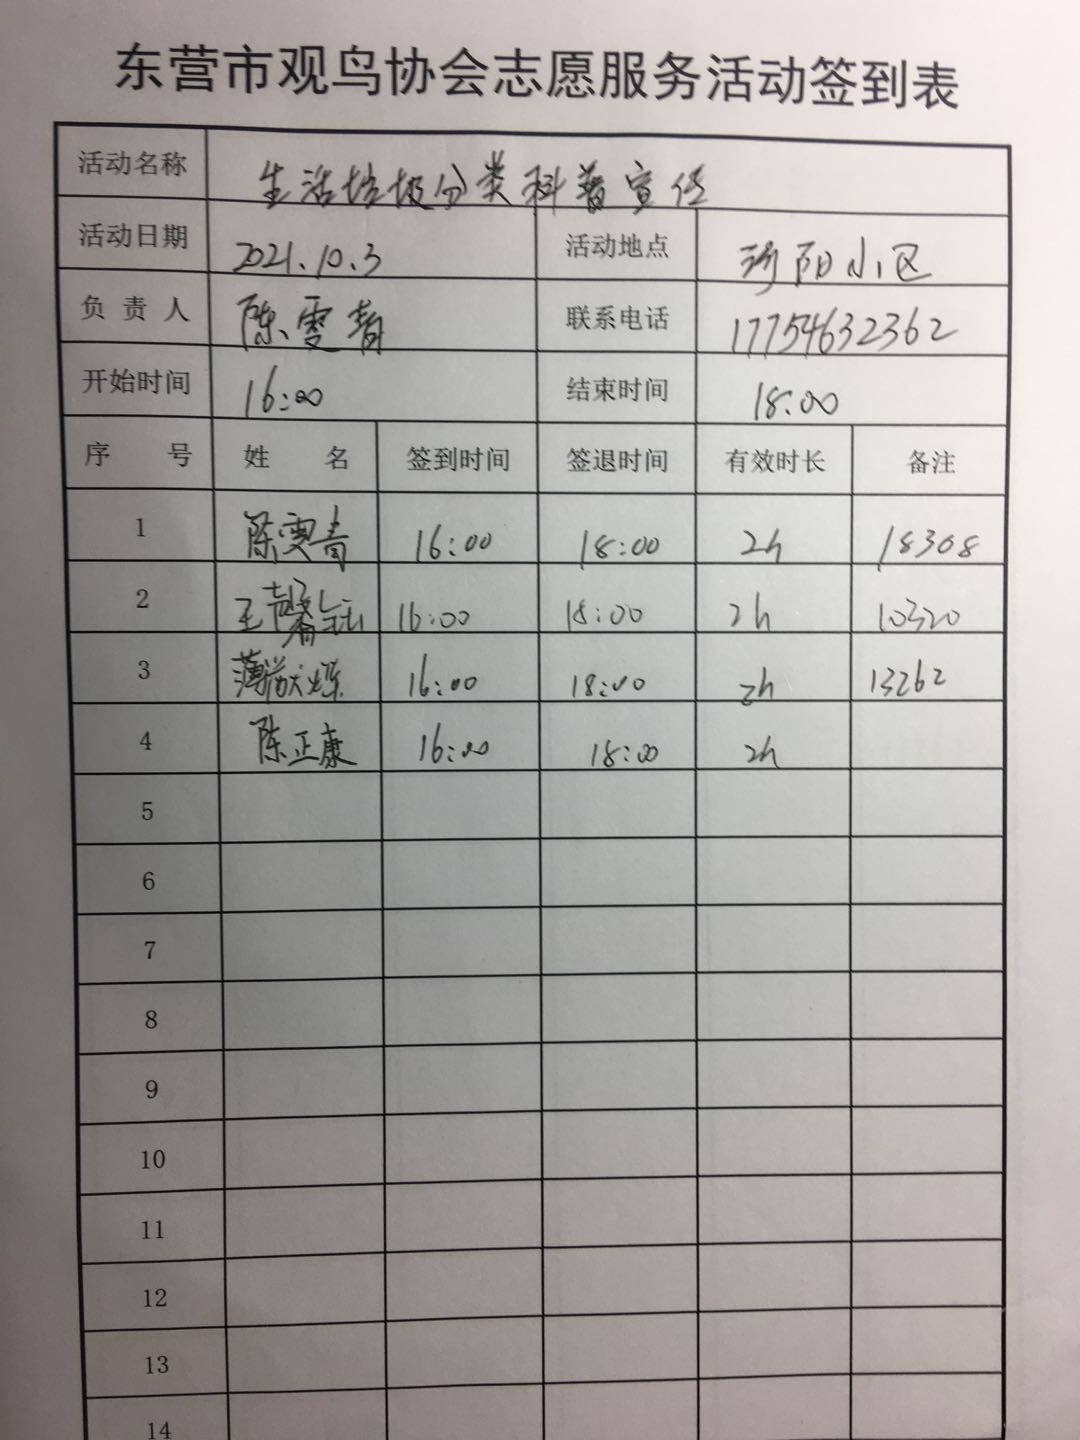 东营市观鸟协会志愿服务活动签到表
活动名称 生活垃圾分类科普宣传
活动日期 2021.10.3 活动地点 阳小区
负责人 陈雯青 联系电话 17754632362
开始时间 16:00 结束时间 18:00
序号 姓名 签到时间 签退时间 有效时长 备注
1 陈雯青 16:00 18:00 2h 18308
2 王馨 16:00 18:00 2h 10320
3 薄 16:00 18:00 2h 13262
4 陈正康 16:00 18:00 2h
5
6
7
8
9
10
11
12
13
14